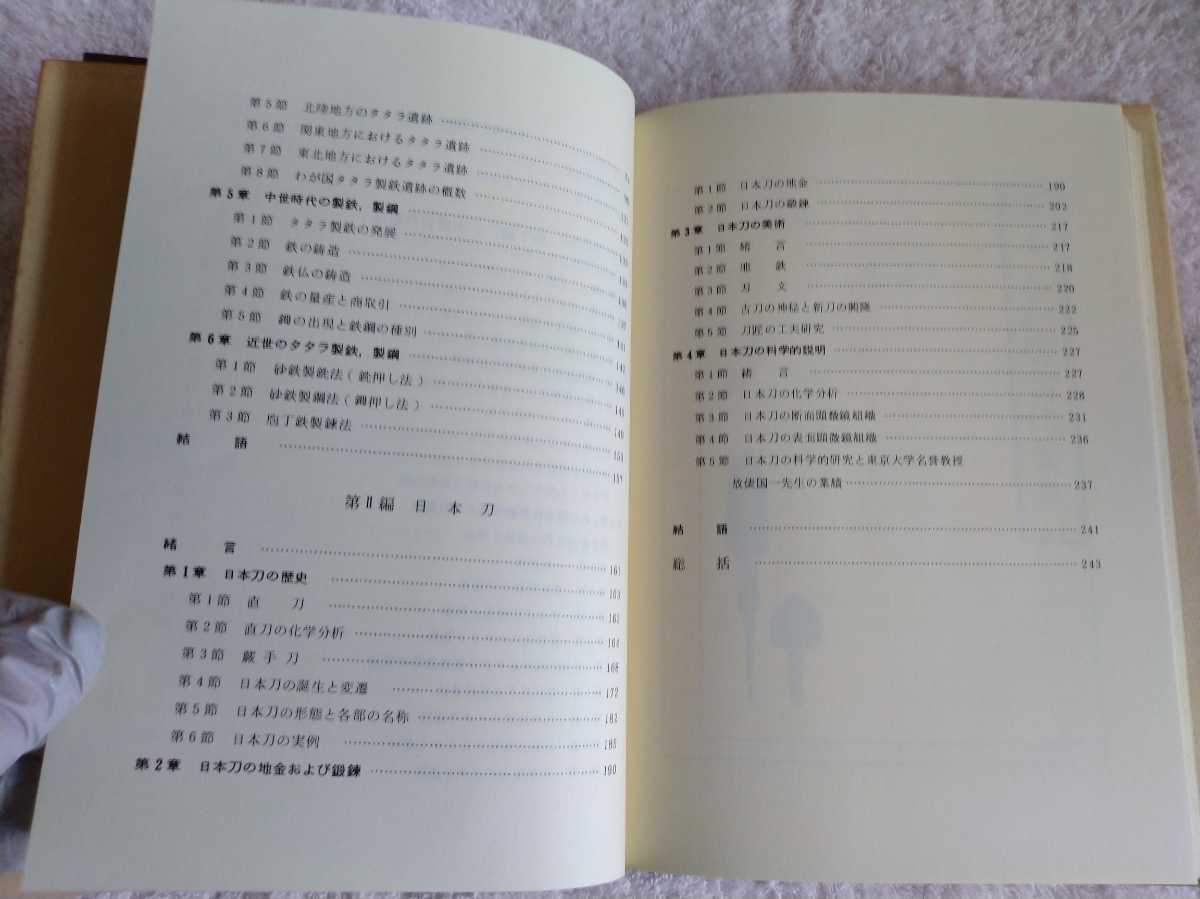 第5節 北陸地方のタタラ遺跡
第6節 関東地方におけるタタラ遺跡
第7節 東北地方におけるタタラ遺跡
第8節 わが国タタラ製鉄遺跡の概数
第5章 中世時代の製鉄，製鋼
第1節 タタラ製鉄の発展
第2節 鉄の鋳造
第3節 鉄仏の鋳造
第4節 鉄の量産と商取引
第5節 鉧の出現と鉄鋼の種別
第6章 近世のタタラ製鉄，製鋼
第1節 砂鉄製銑法（銑押し法）
第2節 砂鉄製鋼法（鉧押し法）
第3節 庖丁鉄製錬法
結語
第Ⅱ編 日本刀
緒言 161
第1章 日本刀の歴史 163
第1節 直刀 163
第2節 直刀の化学分析 164
第3節 蕨手刀 168
第4節 日本刀の誕生と変遷 172
第5節 日本刀の形態と各部の名称
第6節 日本刀の実例
第2章 日本刀の地金および鍛錬 190
第1節 日本刀の地金 190
第2節 日本刀の鍛錬 202
第3章 日本刀の美術 217
第1節 緒言 217
第2節 地鉄 218
第3節 刃文 220
第4節 古刀の神秘と新刀の興隆 222
第5節 刀匠の工夫研究 225
第4章 日本刀の科学的説明 227
第1節 緒言 227
第2節 日本刀の化学分析 228
第3節 日本刀の断面顕微鏡組織 231
第4節 日本刀の表面顕微鏡組織 236
第5節 日本刀の科学的研究と東京大学名誉教授
故俵国一先生の業績 237
結語 241
総括 243